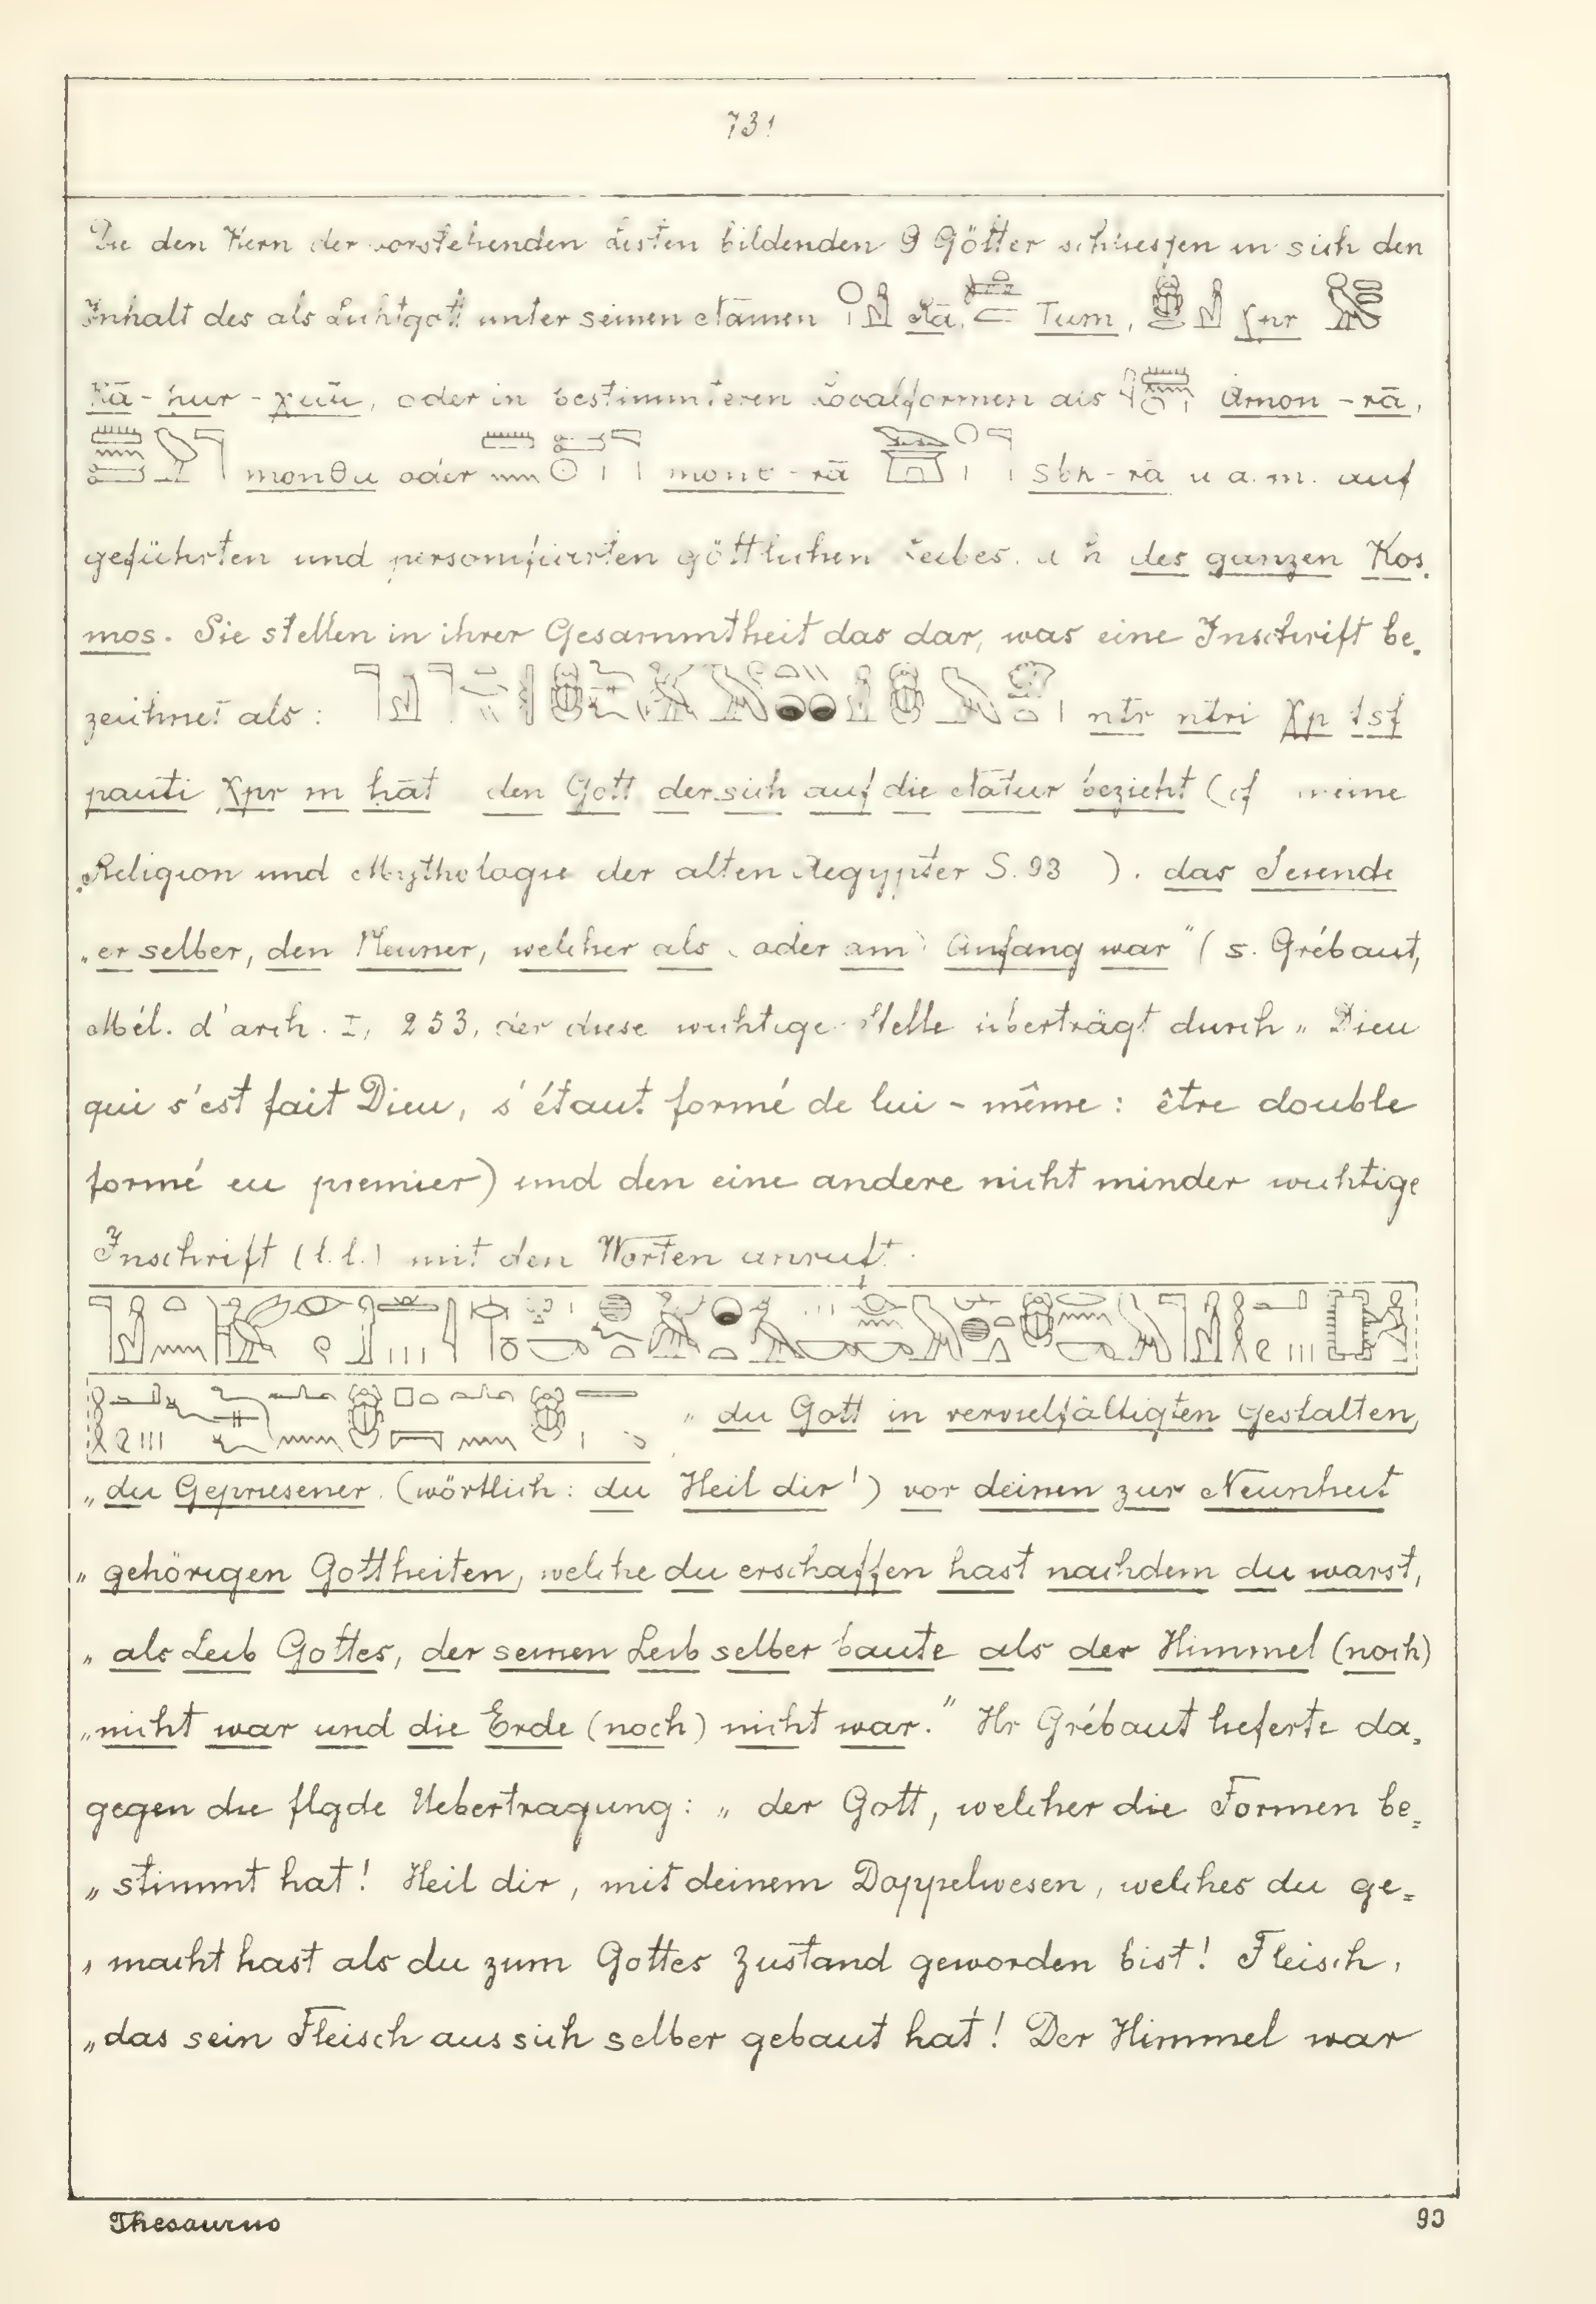 731
Die den Kern der vorstehenden Listen bildenden 9 Götter schliessen in sich den
Inhalt des als Lichtgott unter seinen Namen Rā, Tum, χpr
Rā-hur-χuti, oder in bestimmteren Localformen als Amon-rā,
monθu oder mont-rā sbk-rā u a. m. auf
geführten und personificirten göttlichen Leibes. d h des ganzen Kos-
mos. Sie stellen in ihrer Gesammtheit das dar, was eine Inschrift be-
zeichnet als: ntr ntri χp tsf
pauti χpr m hāt den Gott der sich auf die Natur bezieht (cf meine
„Religion und Mythologie der alten Aegypter S. 93 ). das Seiende
„er selber, den Neuner, welcher als oder am Anfang war" (s. Grébaut,
Mél. d'arch. I, 253, der diese wichtige Stelle überträgt durch „Dieu
qui s'est fait Dieu, s'étaut formé de lui-même: être double
formé eu premier) und den eine andere nicht minder wichtige
Inschrift (l.l.) mit den Worten anruft:
„du Gott in vervielfältigten Gestalten,
„du Gepriesener (wörtlich: du Heil dir!) vor deinen zur Neunheit
„gehörigen Gottheiten, welche du erschaffen hast nachdem du warst,
„als Leib Gottes, der seinen Leib selber baute als der Himmel (noch)
„nicht war und die Erde (noch) nicht war." Hr Grébaut lieferte da-
gegen die flgde Uebertragung: „der Gott, welcher die Formen be-
„stimmt hat! Heil dir, mit deinem Doppelwesen, welches du ge-
„macht hast als du zum Gottes Zustand geworden bist! Fleisch,
„das sein Fleisch aus sich selber gebaut hat! Der Himmel war
Thesaurus 93